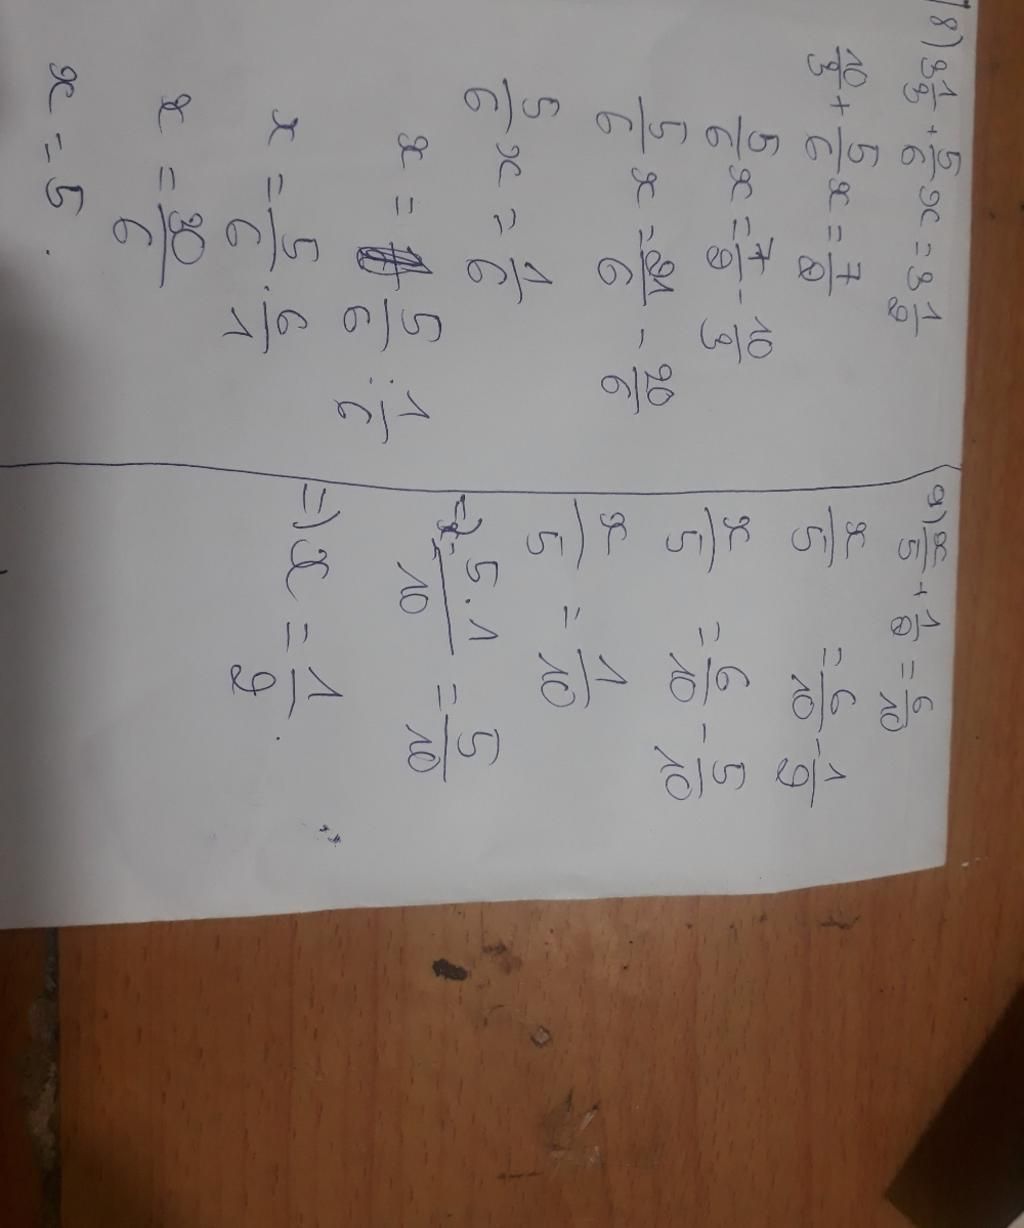 8) 3 1/3 + 5/6 x = 3 1/2
10/3 + 5/6 x = 7/2
5/6 x = 7/2 - 10/3
5/6 x = 21/6 - 20/6
5/6 x = 1/6
x = 5/6 : 1/6
x = 5/6 . 6/1
x = 30/6
x = 5.
9) x/5 + 1/2 = 6/10
x/5 = 6/10 - 1/2
x/5 = 6/10 - 5/10
x/5 = 1/10
=> x = 5.1/10 = 5/10
=> x = 1/2.